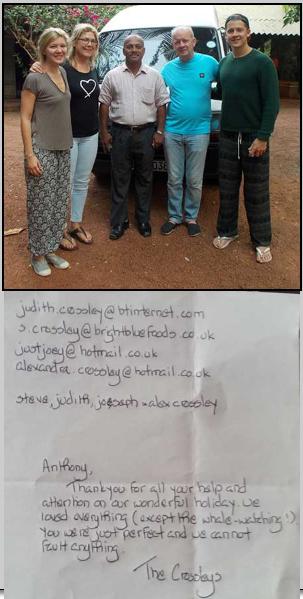 judith.crossley@btinternet.com
s.crossley@brightbluefoods.co.uk
justjoey@hotmail.co.uk
alexandra.crossley@hotmail.co.uk
steve, judith, joseph + alex crossley
Anthony,
Thankyou for all your help and
attention on our wonderful holiday. We
loved everything (except the whale-watching!)
You were just perfect and we cannot
fault anything.
The Crossleys